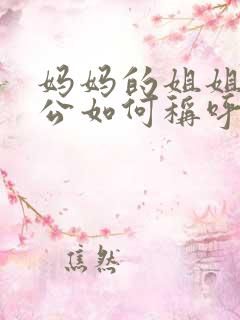 妈妈的姐姐
公如何稱呼
焦然